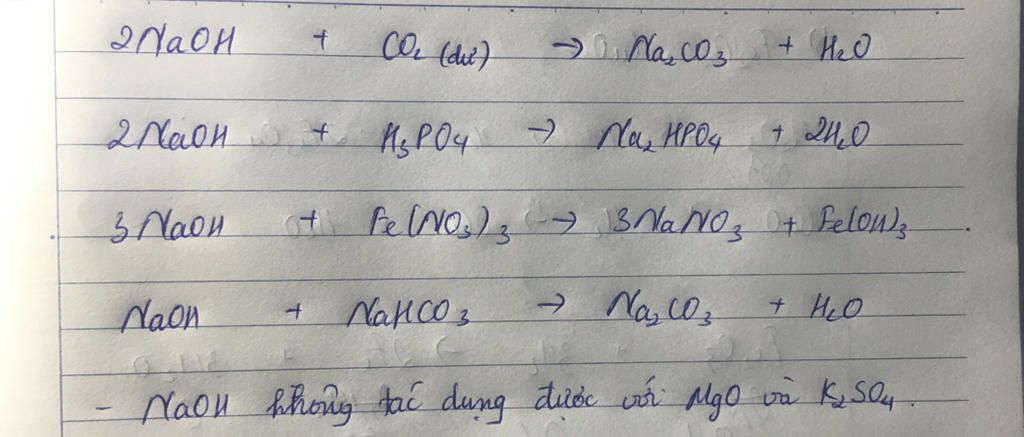 2NaOH + CO₂ (dư) → Na₂CO₃ + H₂O
2NaOH + H₃PO₄ → Na₂HPO₄ + 2H₂O
3NaOH + Fe(NO₃)₃ → 3NaNO₃ + Fe(OH)₃
NaOH + NaHCO₃ → Na₂CO₃ + H₂O
- NaOH không tác dụng được với MgO và K₂SO₄.